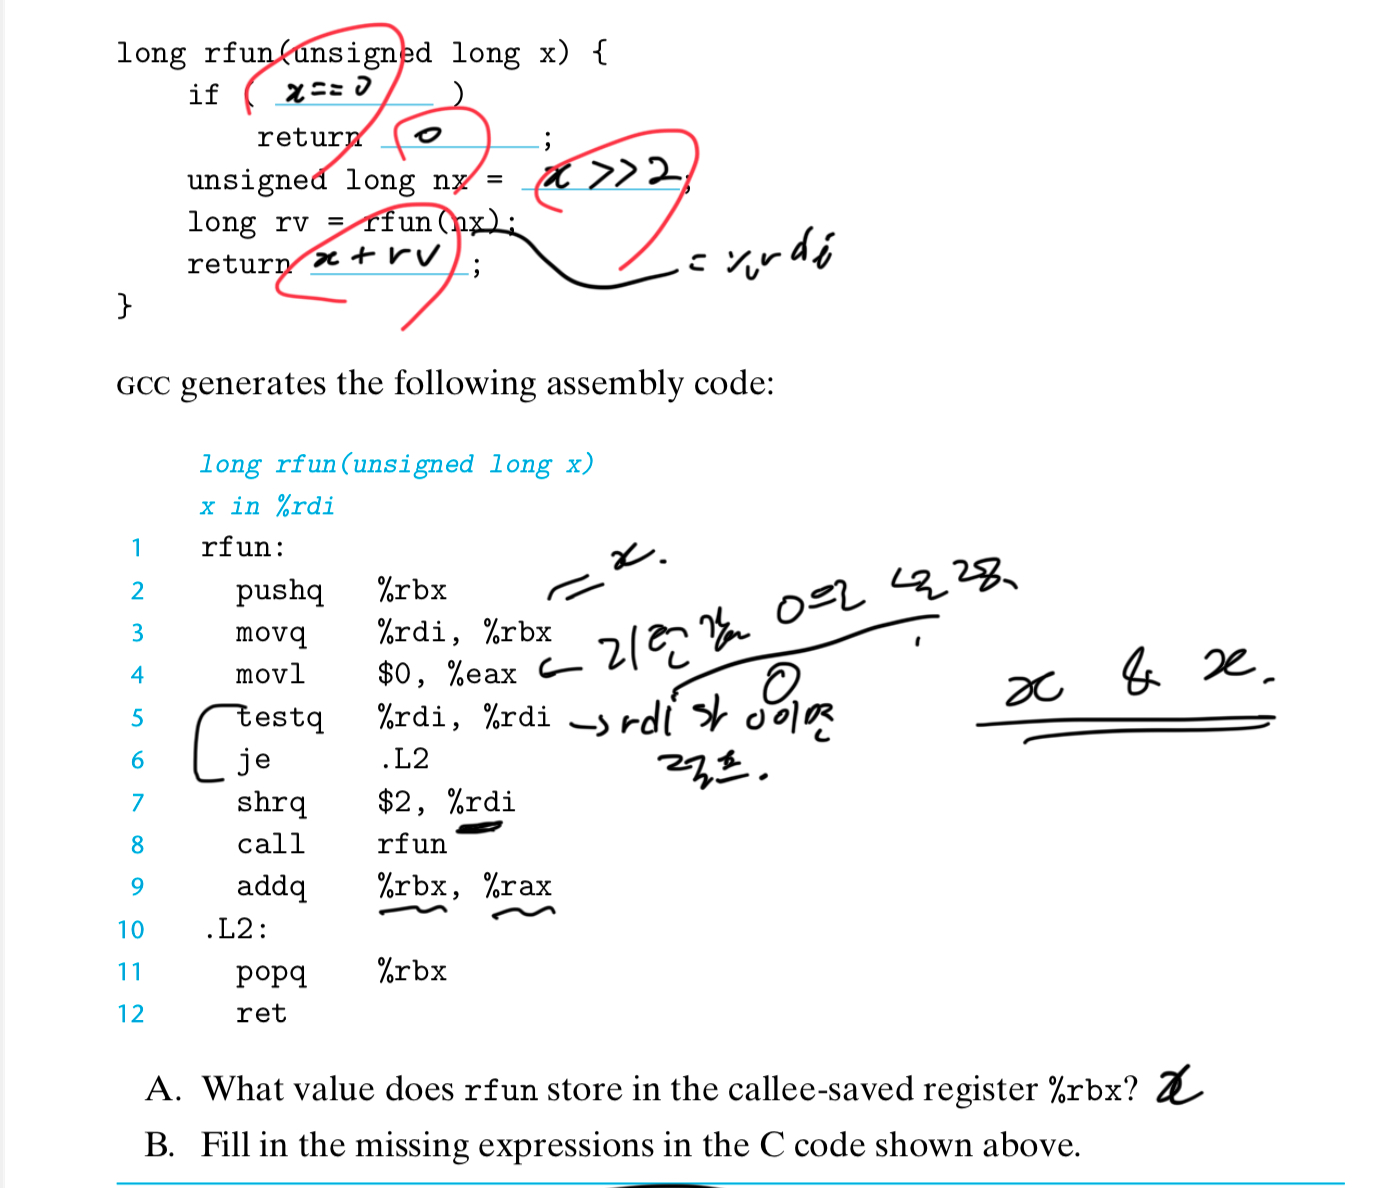 long rfun(unsigned long x) {
if ( x==0 )
return 0 ;
unsigned long nx = x >>2;
long rv = rfun(nx);
return x + rv ;
= %rdi
}
GCC generates the following assembly code:
long rfun(unsigned long x)
x in %rdi
1 rfun:
2 pushq %rbx = x.
3 movq %rdi, %rbx
4 movl $0, %eax ← 리턴 값 0으로
5 testq %rdi, %rdi → rdi 0이면
x & x.
6 je .L2
7 shrq $2, %rdi
8 call rfun
9 addq %rbx, %rax
10 .L2:
11 popq %rbx
12 ret
A. What value does rfun store in the callee-saved register %rbx? x
B. Fill in the missing expressions in the C code shown above.